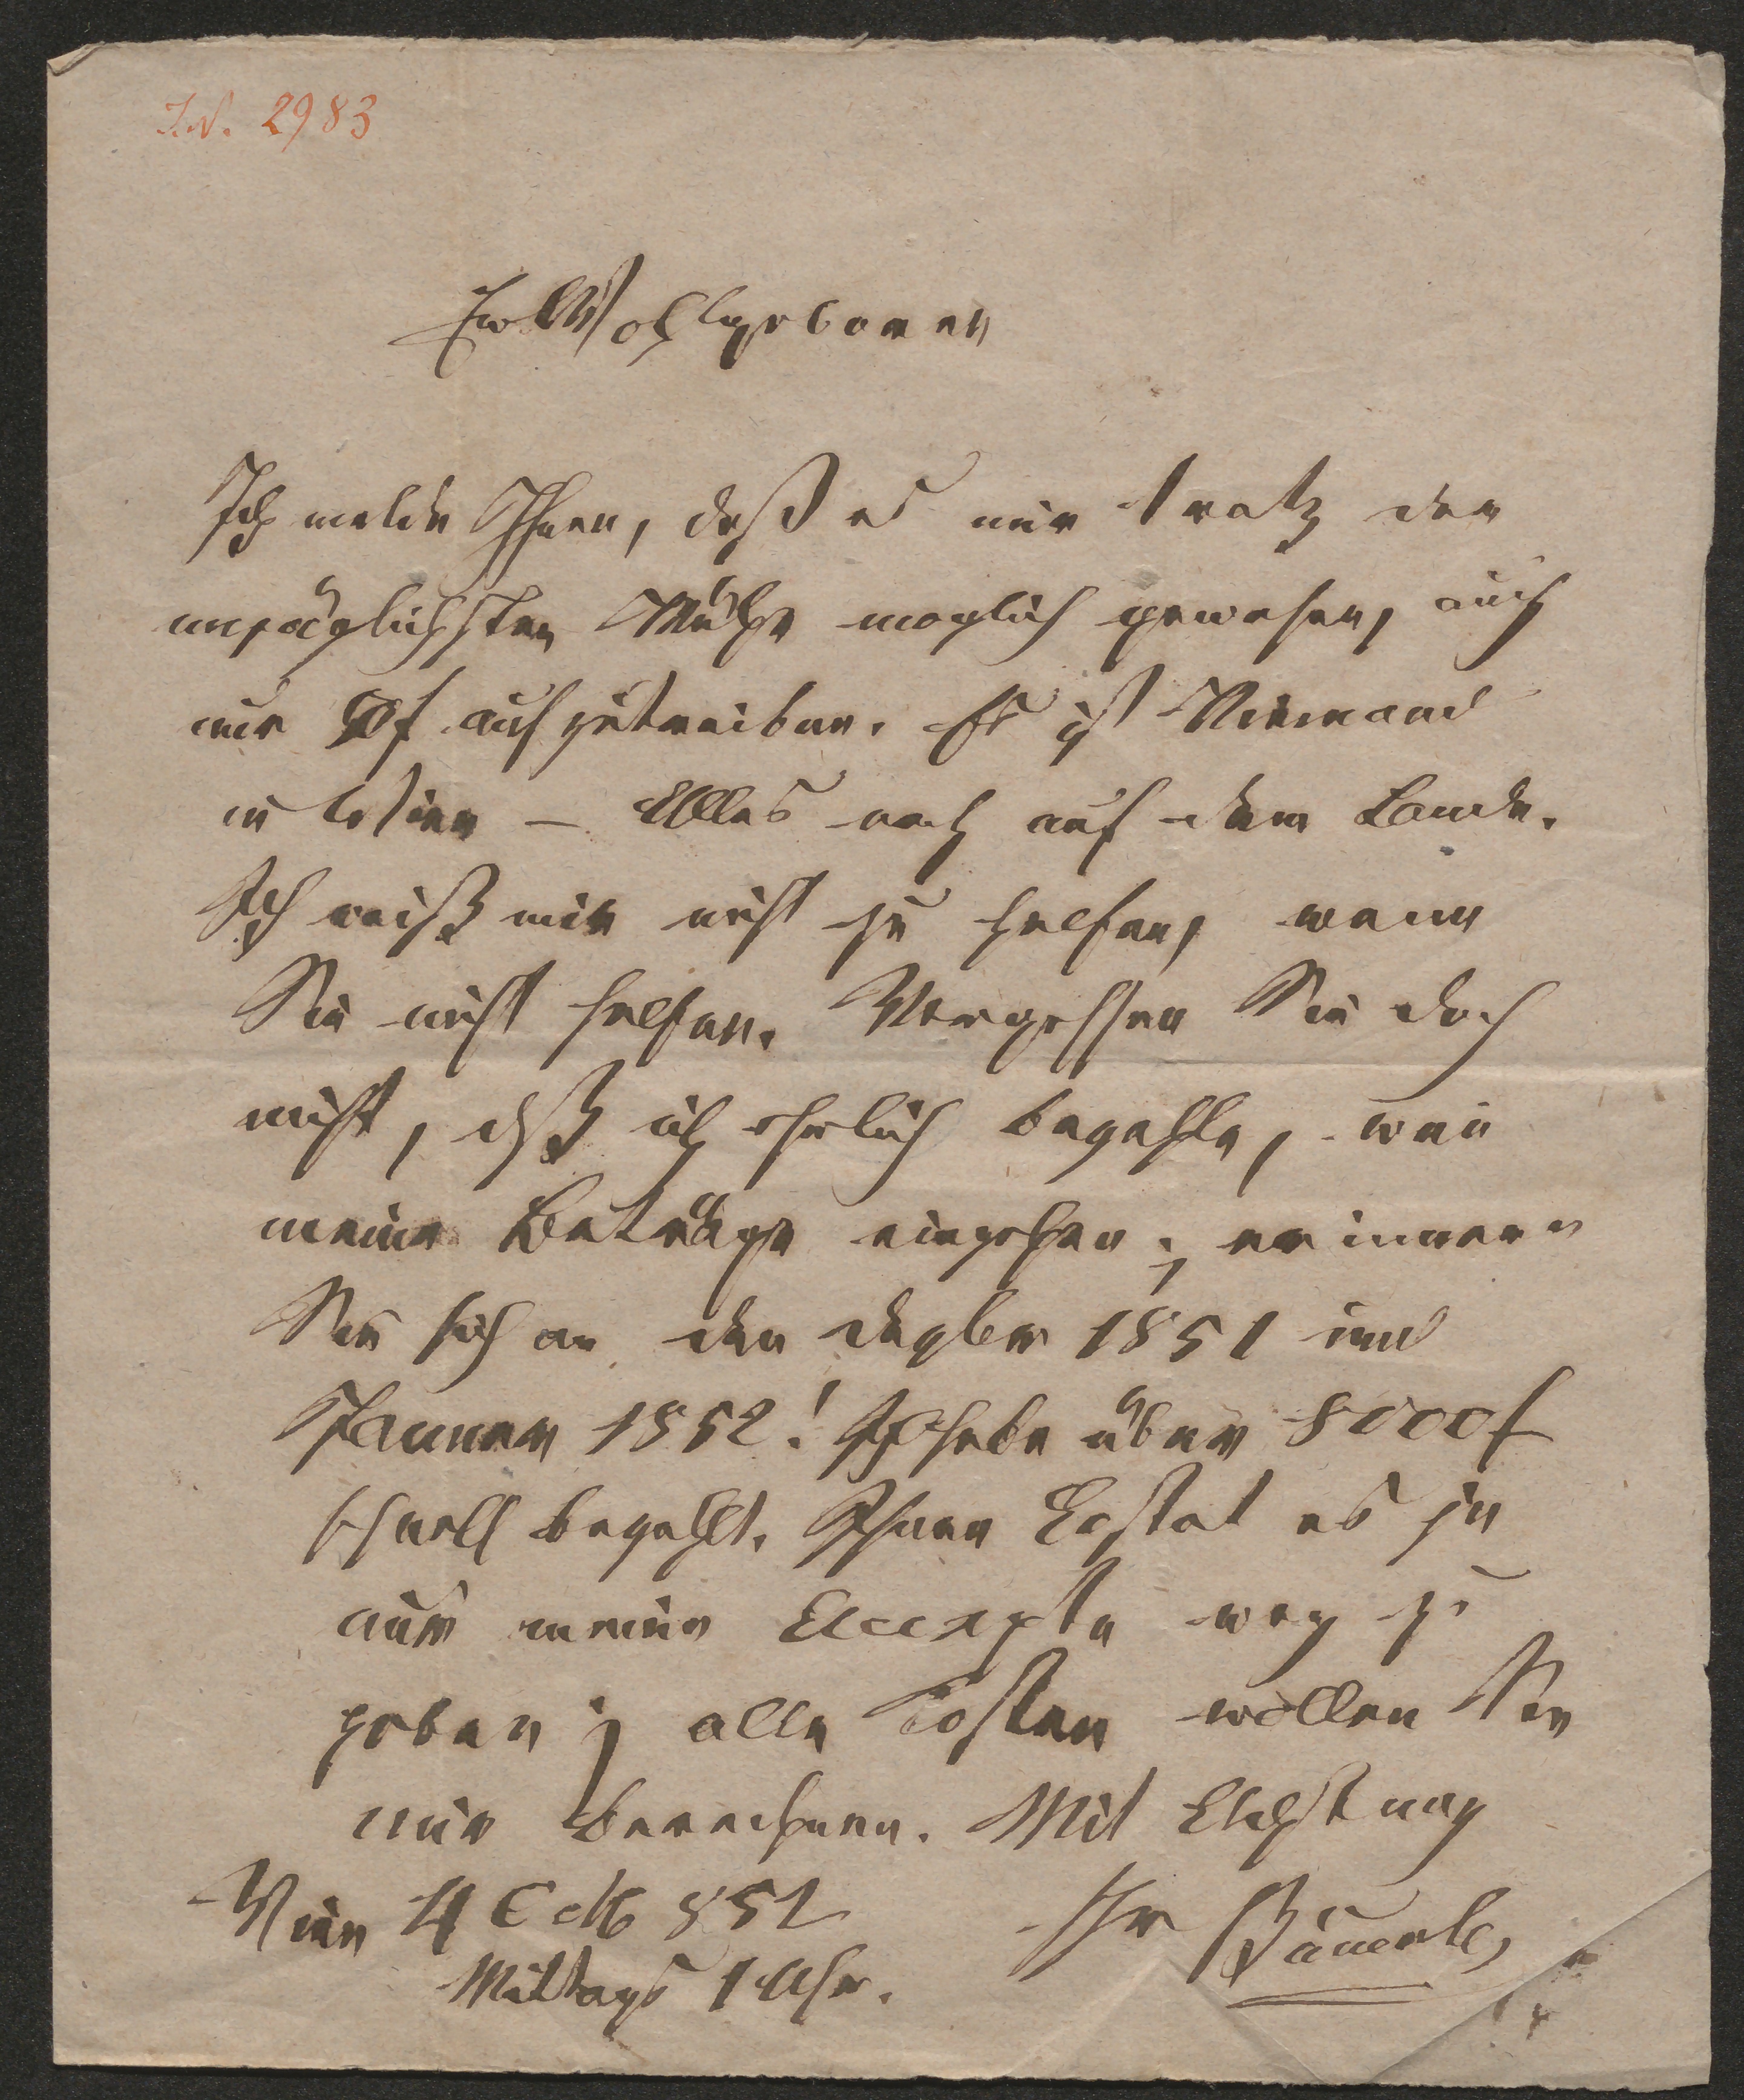 I.N. 2983
Ew Wohlgeboren
Ich melde Ihnen, daß es mir trotz der
unsäglichsten Mühe moglich gewesen, auch
nur f aufzutreiben. Es ist Niemand
in Wien – Alles noch auf dem Lande.
Ich weiß mir nicht zu helfen, wenn
Sie nicht helfen. Vergessen Sie doch
nicht, daß ich ehrlich bezahle, wenn
meine Beträge eingehen; erinnern
Sie sich an den Dezber 1851 und
Jänner 1852! Ich habe über 8000f
schnell bezahlt. Ihnen kostet es ja
nur meine Accepte weg zu
geben; alle Kosten wollen Sie
mir berechnen. Mit Achtung
Wien 4 Octb 852 Ihr Bäuerle,
Mittags 1 Uhr.